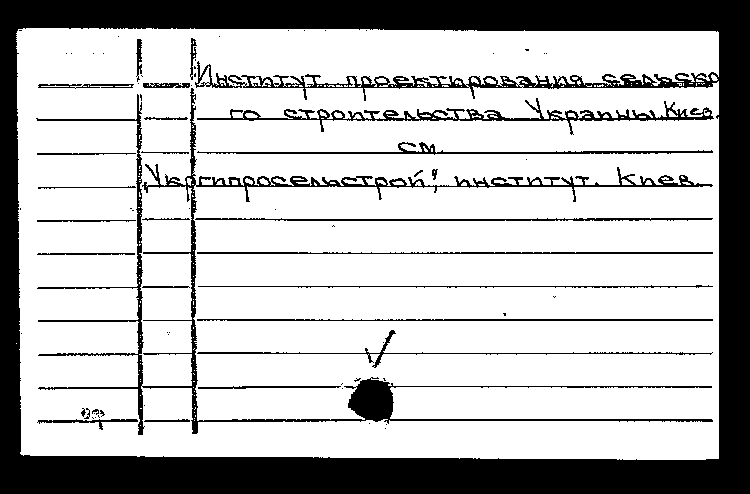 Институт проектирования сельско
го строительства Украины. Киев.
см.
„Укргипросельстрой", институт. Киев.